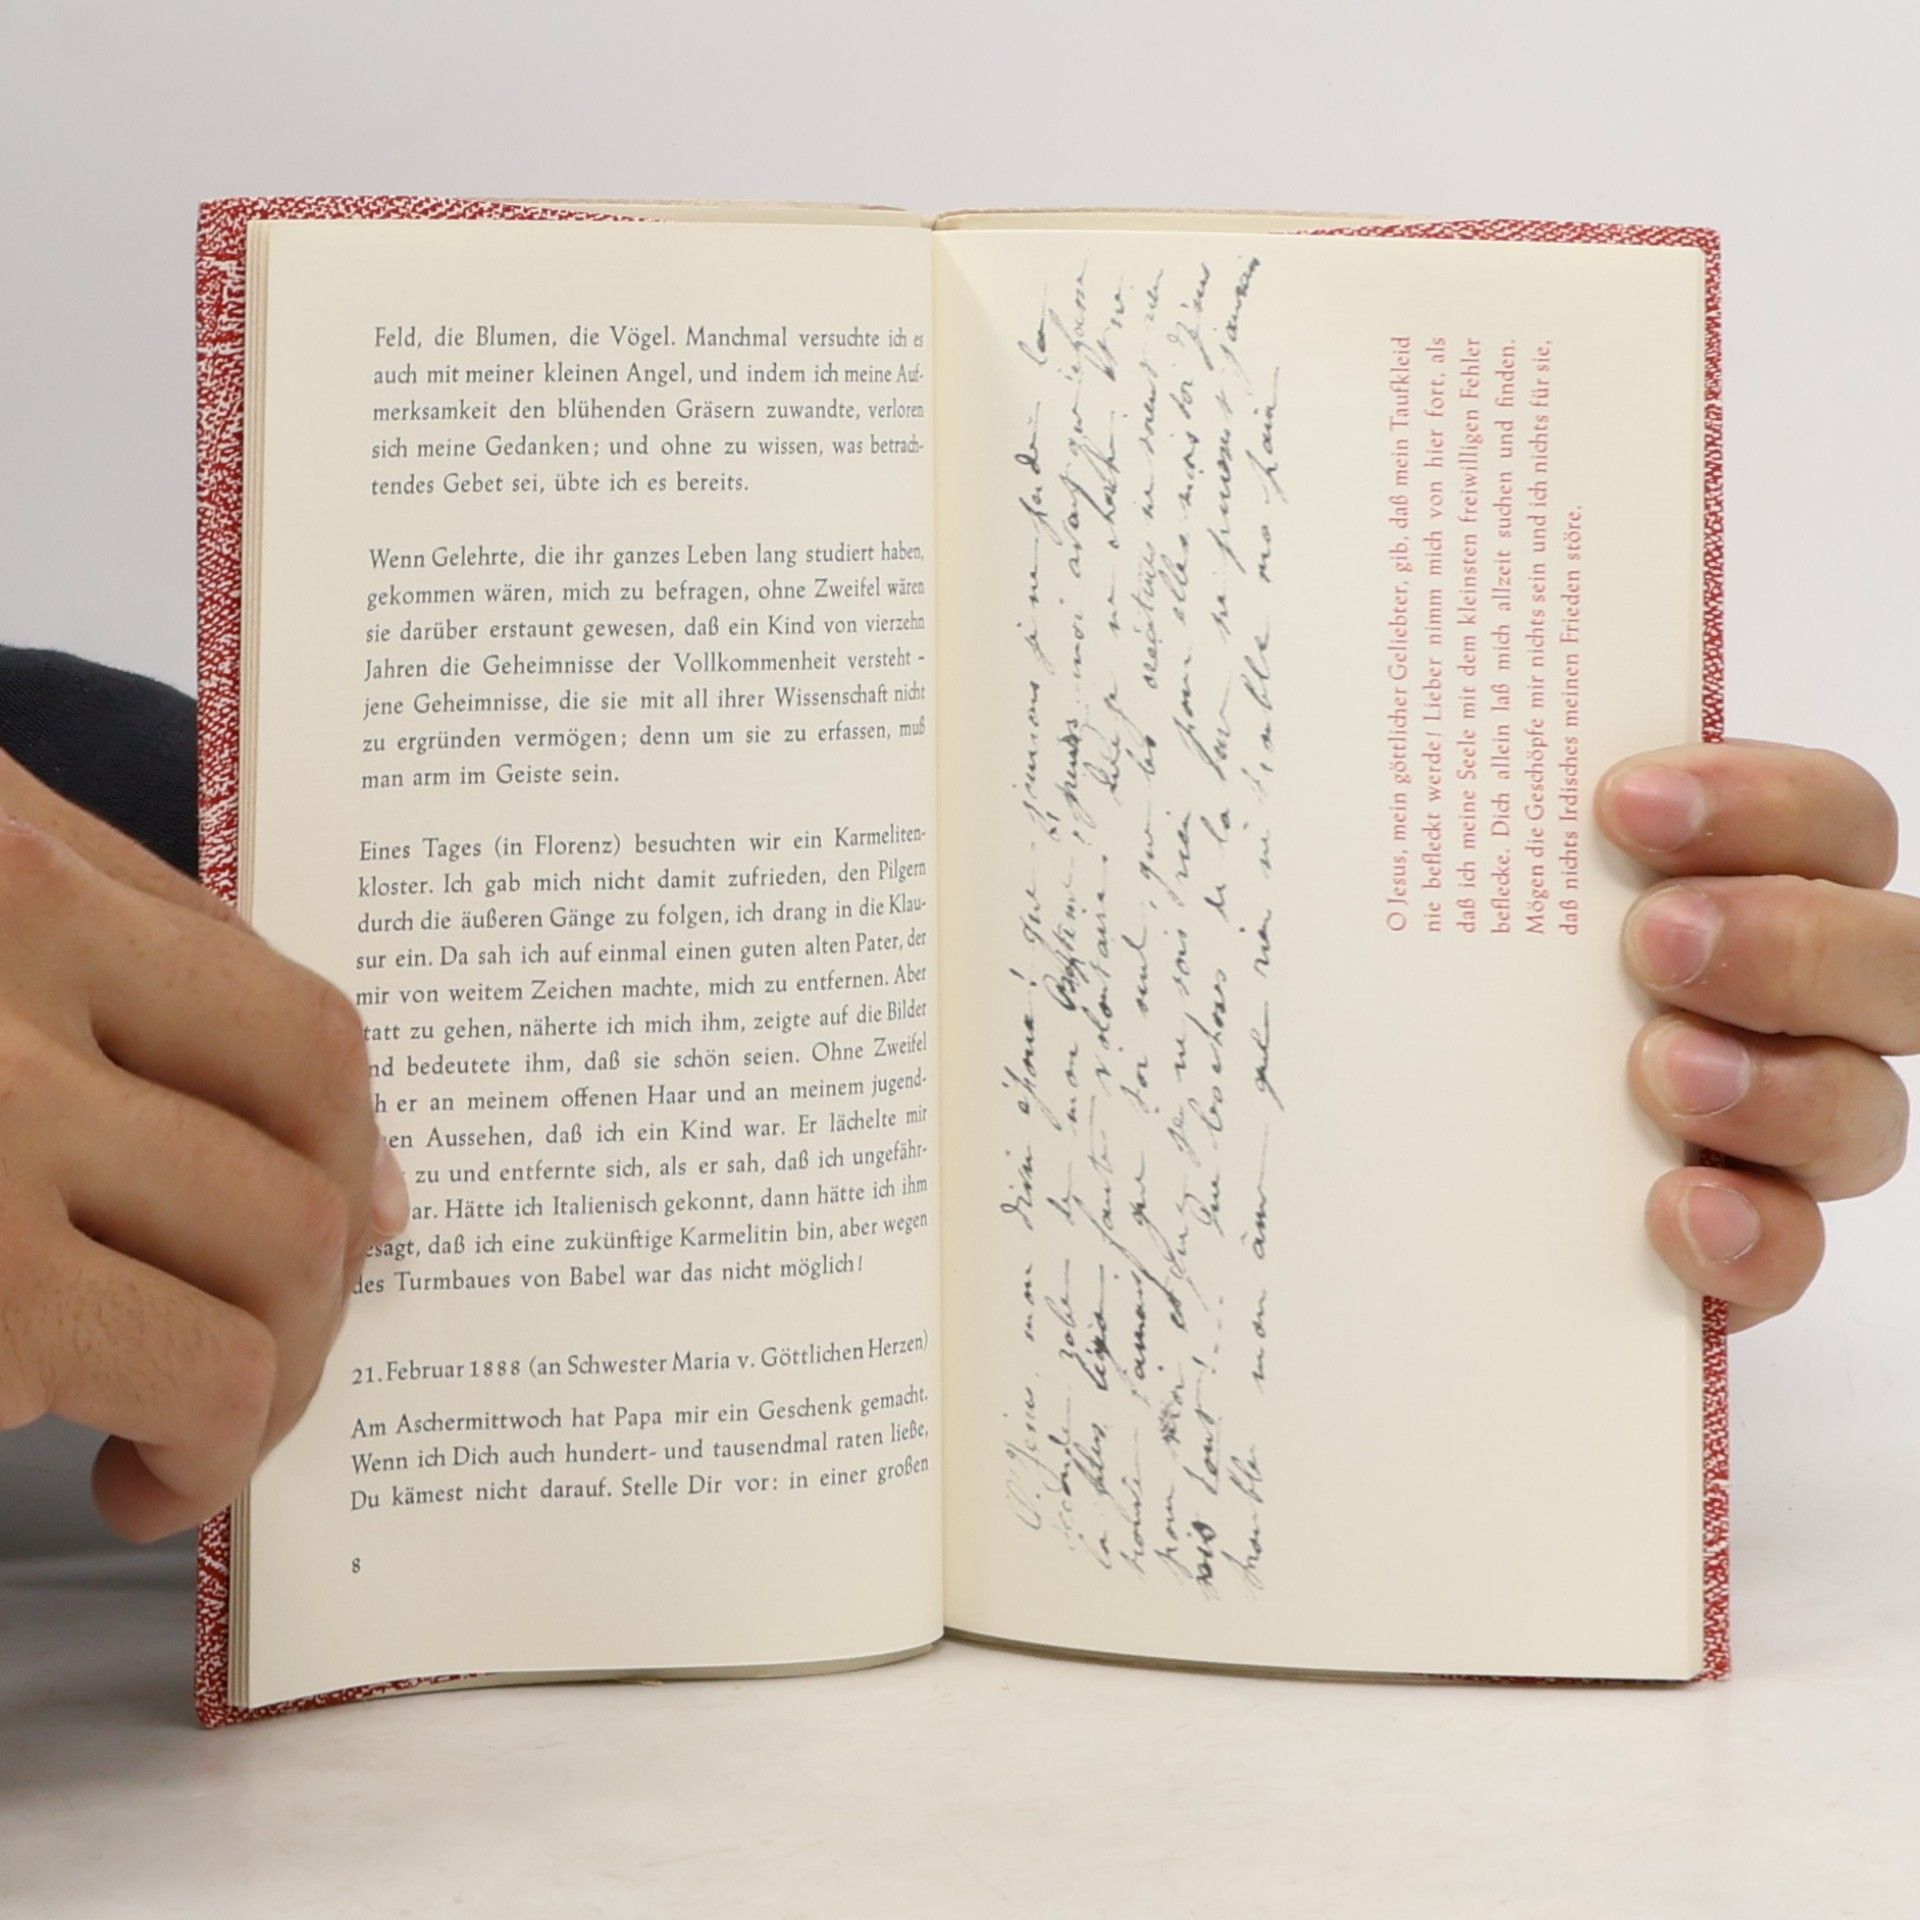 Feld, die Blumen, die Vögel. Manchmal versuchte ich es
auch mit meiner kleinen Angel, und indem ich meine Auf-
merksamkeit den blühenden Gräsern zuwandte, verloren
sich meine Gedanken; und ohne zu wissen, was betrach-
tendes Gebet sei, übte ich es bereits.
Wenn Gelehrte, die ihr ganzes Leben lang studiert haben,
gekommen wären, mich zu befragen, ohne Zweifel wären
sie darüber erstaunt gewesen, daß ein Kind von vierzehn
Jahren die Geheimnisse der Vollkommenheit versteht -
jene Geheimnisse, die sie mit all ihrer Wissenschaft nicht
zu ergründen vermögen; denn um sie zu erfassen, muß
man arm im Geiste sein.
Eines Tages (in Florenz) besuchten wir ein Karmeliten-
kloster. Ich gab mich nicht damit zufrieden, den Pilgern
durch die äußeren Gänge zu folgen, ich drang in die Klau-
sur ein. Da sah ich auf einmal einen guten alten Pater, der
mir von weitem Zeichen machte, mich zu entfernen. Aber
tatt zu gehen, näherte ich mich ihm, zeigte auf die Bilder
nd bedeutete ihm, daß sie schön seien. Ohne Zweifel
h er an meinem offenen Haar und an meinem jugend-
en Aussehen, daß ich ein Kind war. Er lächelte mir
zu und entfernte sich, als er sah, daß ich ungefähr-
ar. Hätte ich Italienisch gekonnt, dann hätte ich ihm
esagt, daß ich eine zukünftige Karmelitin bin, aber wegen
des Turmbaues von Babel war das nicht möglich!
21. Februar 1888 (an Schwester Maria v. Göttlichen Herzen)
Am Aschermittwoch hat Papa mir ein Geschenk gemacht.
Wenn ich Dich auch hundert- und tausendmal raten ließe,
Du kämest nicht darauf. Stelle Dir vor: in einer großen
8
O Jésus, mon divin époux! que jamais je ne perde la
seconde robe de mon Baptême, prends-moi avant que je
la plus légère faute volontaire. Que je ne cherche et ne
trouve jamais que toi seul, que les créatures ne soient rien
pour moi et que je ne sois rien pour elles mais toi Jésus
sois tout! Que les choses de la terre ne puissent jamais
troubler mon âme que rien ne trouble ma paix
O Jesus, mein göttlicher Geliebter, gib, daß mein Taufkleid
nie befleckt werde! Lieber nimm mich von hier fort, als
daß ich meine Seele mit dem kleinsten freiwilligen Fehler
beflecke. Dich allein laß mich allzeit suchen und finden.
Mögen die Geschöpfe mir nichts sein und ich nichts für sie,
daß nichts Irdisches meinen Frieden störe.